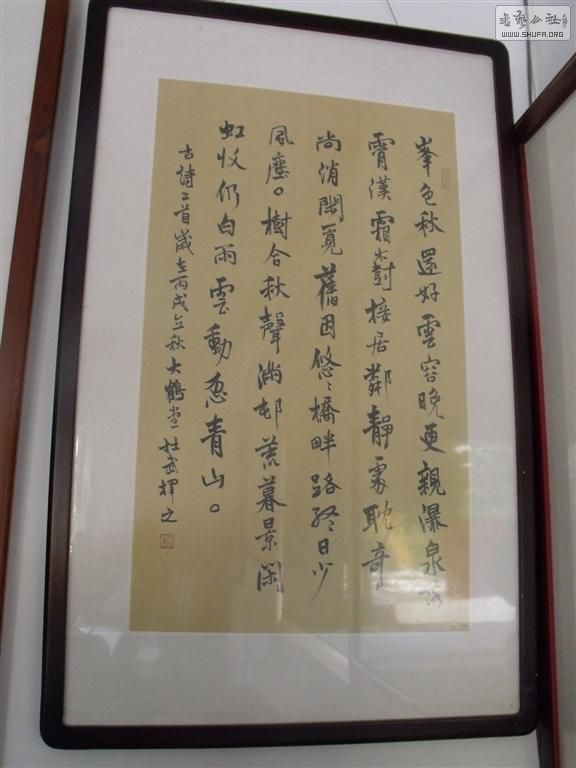 峯色秋還好雲容晚更親瀑泉落
霄漢霜樹接居鄰靜處耽奇
尚消閑覓舊因悠〻橋畔路終日少
風塵。樹合秋聲滿邨荒暮景閑
虹收仍白雨雲動忽青山。
古詩二首歲在丙戌立秋大鶴堂杜武揮之
書藝公社
WWW.SHUFA.ORG